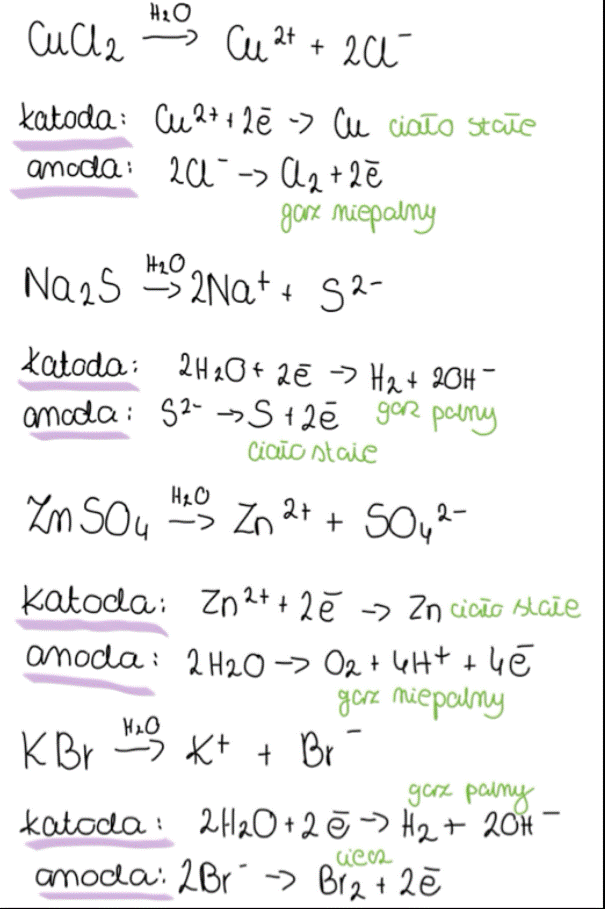 CuCl₂ —H₂O→ Cu²⁺ + 2Cl⁻
katoda: Cu²⁺ + 2ē → Cu ciało stałe
anoda: 2Cl⁻ → Cl₂ + 2ē
gaz niepalny
Na₂S —H₂O→ 2Na⁺ + S²⁻
katoda: 2H₂O + 2ē → H₂ + 2OH⁻
anoda: S²⁻ → S + 2ē gaz palny
ciało stałe
ZnSO₄ —H₂O→ Zn²⁺ + SO₄²⁻
katoda: Zn²⁺ + 2ē → Zn ciało stałe
anoda: 2H₂O → O₂ + 4H⁺ + 4ē
gaz niepalny
KBr —H₂O→ K⁺ + Br⁻
gaz palny
katoda: 2H₂O + 2ē → H₂ + 2OH⁻
ciecz
anoda: 2Br⁻ → Br₂ + 2ē